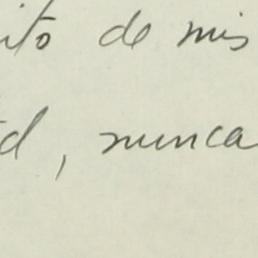 ito de mis
d, nunca